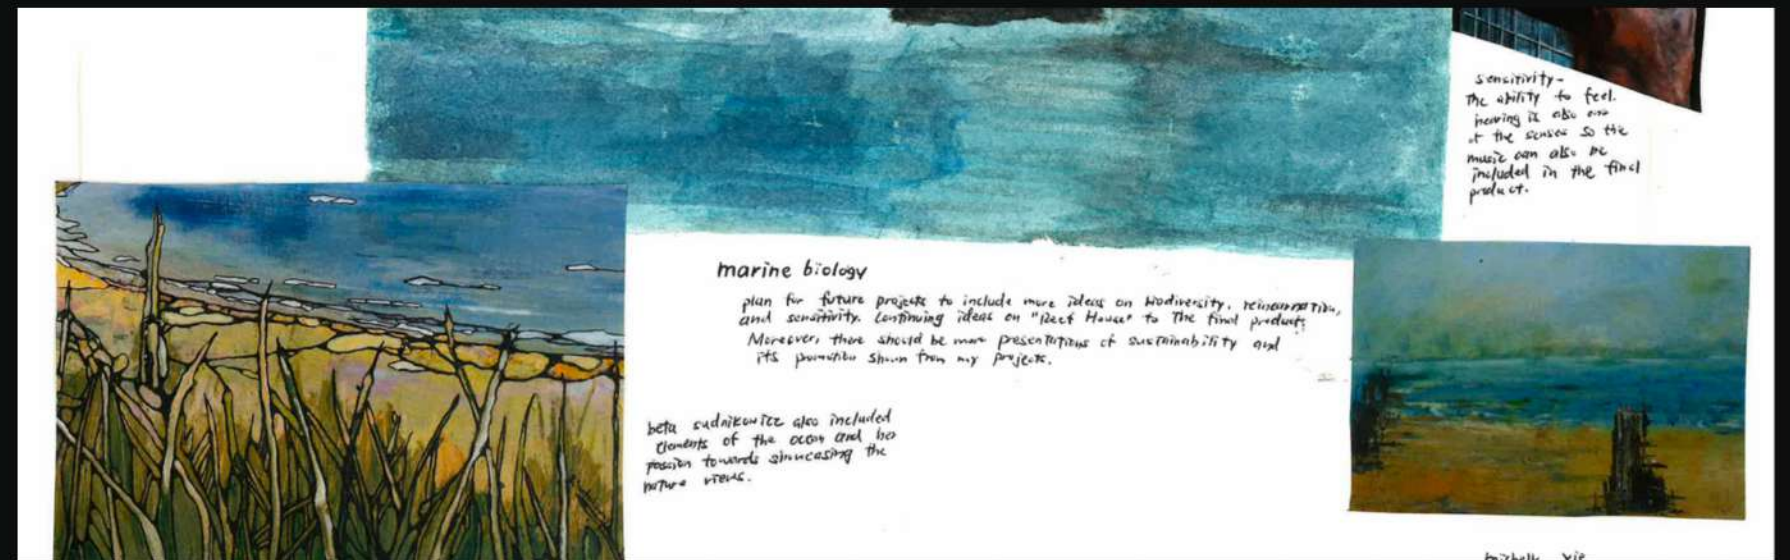 sensitivity -
the ability to feel.
hearing is also one
of the senses so the
music can also be
included in the final
product.
marine biology
plan for future projects to include more ideas on biodiversity, reincarnation,
and sensitivity. Continuing ideas on "Reef House" to the final products
Moreover, there should be more presentations of sustainability and
its promotion shown from my projects.
beta sudnikowicz also included
elements of the ocean and her
passion towards showcasing the
nature views.